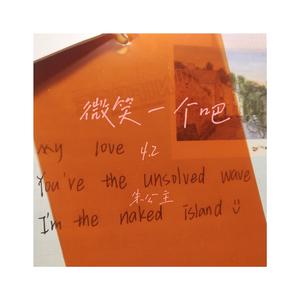 微笑一个吧
my love 4.2
You've the unsolved wave
朱公主
I'm the naked island